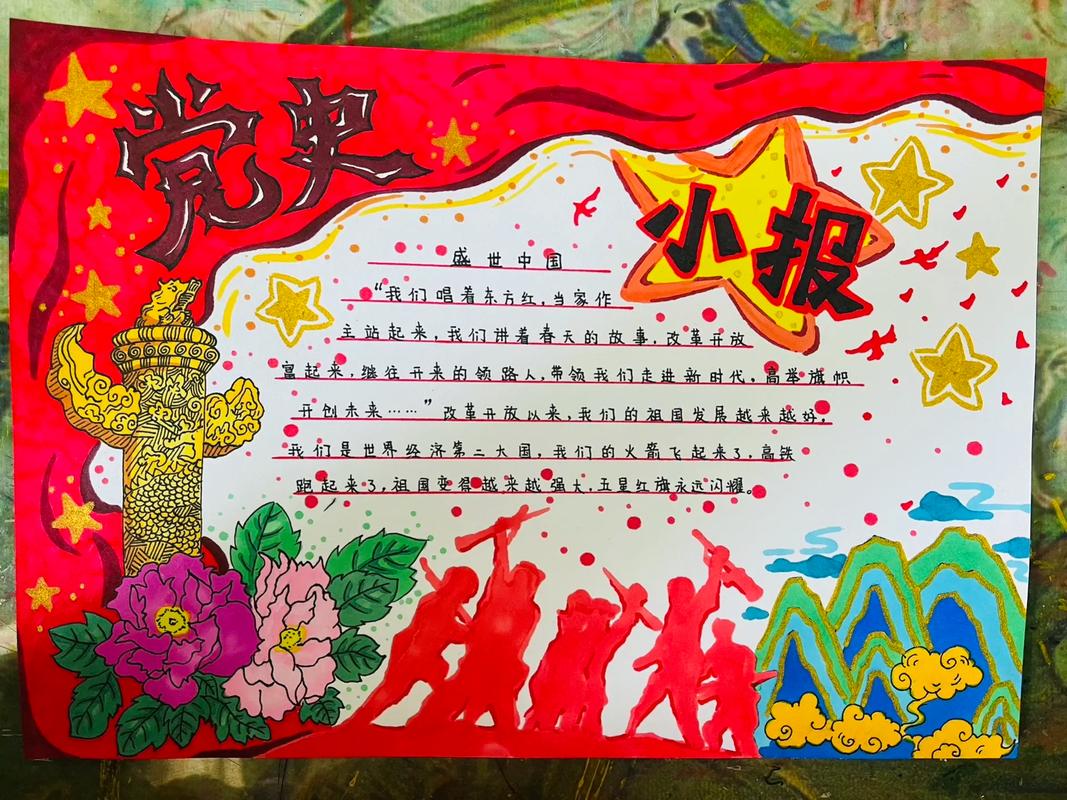 党史
小报
盛世中国
“我们唱着东方红,当家作
主站起来,我们讲着春天的故事,改革开放
富起来,继往开来的领路人,带领我们走进新时代,高举旗帜
开创未来……”改革开放以来,我们的祖国发展越来越好,
我们是世界经济第二大国,我们的火箭飞起来了,高铁
跑起来了,祖国变得越来越强大,五星红旗永远闪耀。